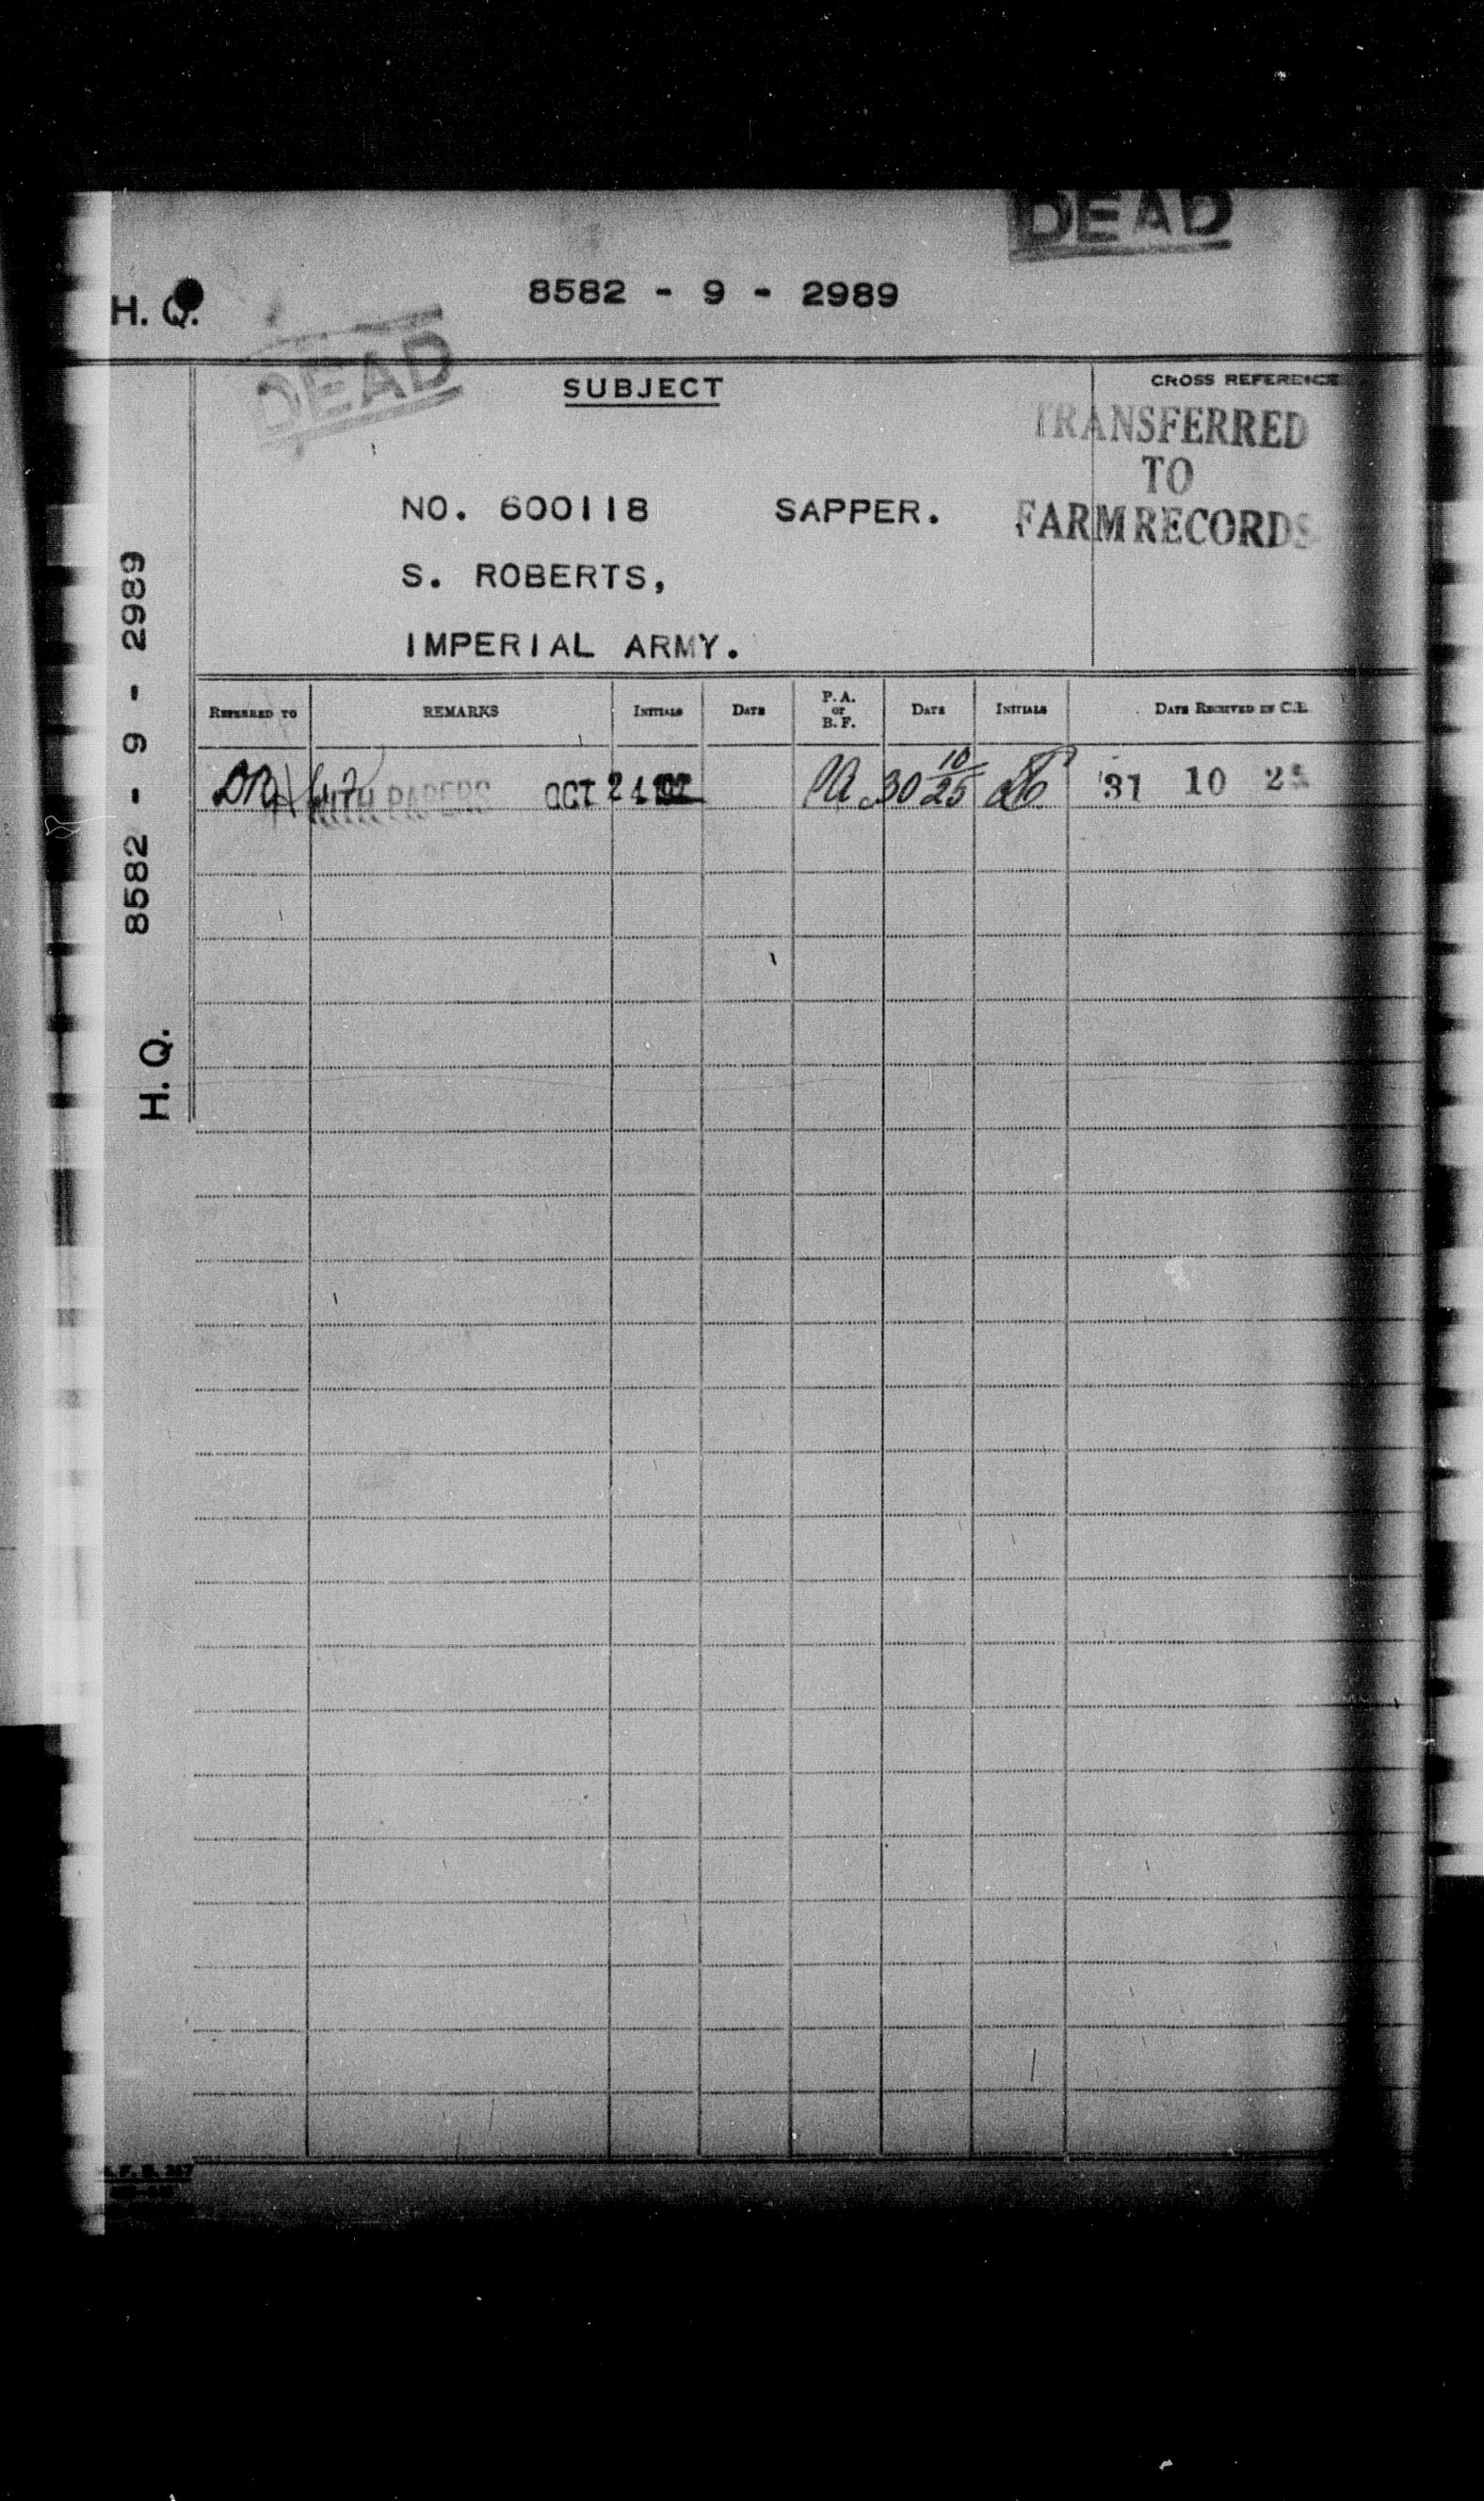 DEAD
H. Q. 8582 - 9 - 2989
DEAD
SUBJECT
CROSS REFERENCE
TRANSFERRED
TO
FARM RECORDS
NO. 600118 SAPPER.
S. ROBERTS,
IMPERIAL ARMY.
H. Q. 8582 - 9 - 2989
REFERRED TO REMARKS INITIALS DATE P.A. or B.F. DATE INITIALS DATE RECEIVED IN C.R.
WITH PAPERS OCT 24 PA 30 10/25 31 10 25